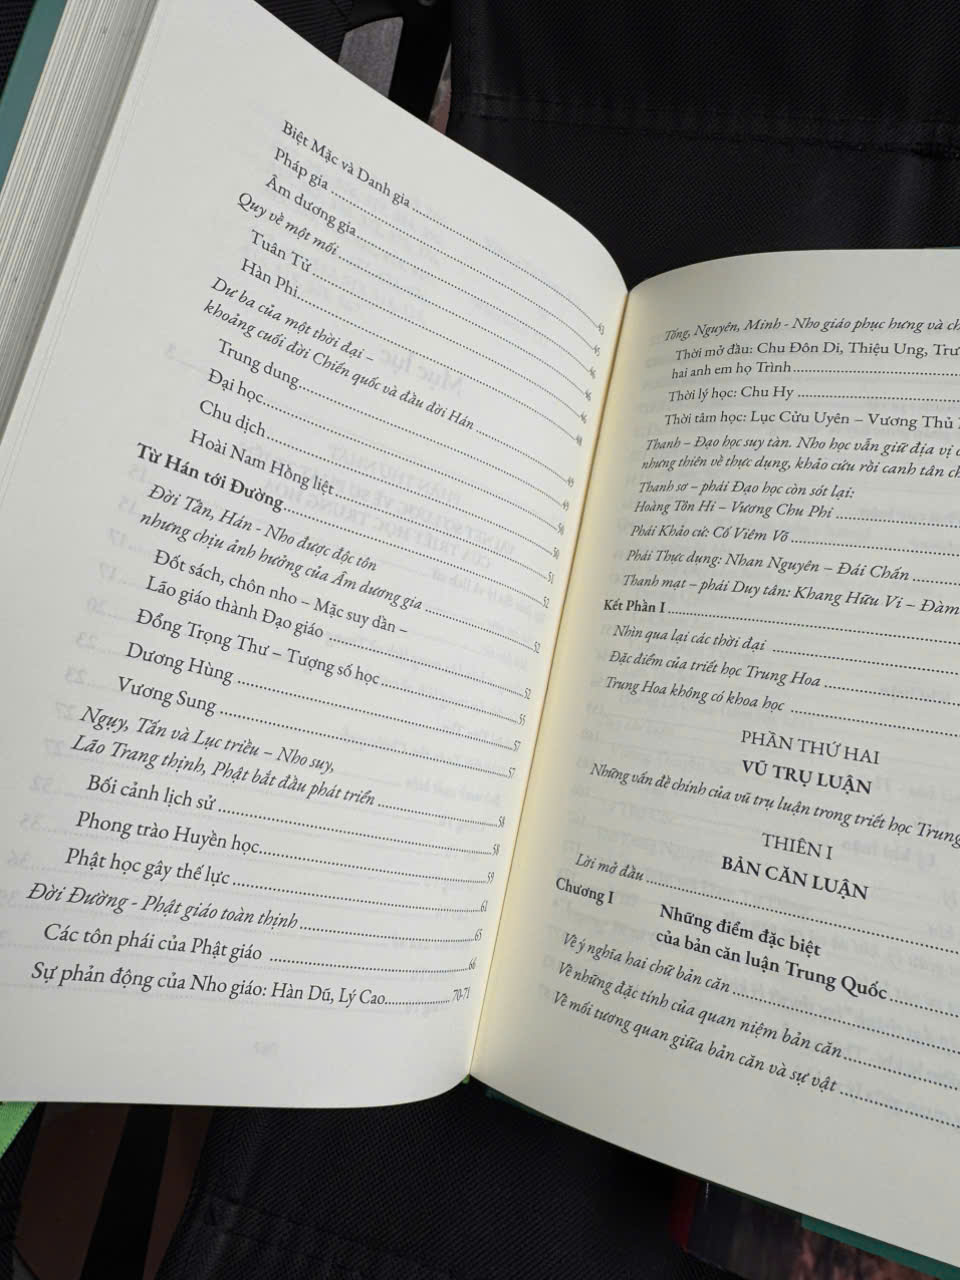 Biệt Mặc và Danh gia ..... 43
Pháp gia ..... 45
Âm dương gia ..... 46
Quy về một mối ..... 46
Tuân Tử ..... 46
Hàn Phi ..... 48
Dư ba của một thời đại –
khoảng cuối đời Chiến quốc và đầu đời Hán ..... 49
Trung dung ..... 49
Đại học ..... 49
Chu dịch ..... 50
Hoài Nam Hồng liệt ..... 50
Từ Hán tới Đường ..... 51
Đời Tần, Hán - Nho được độc tôn
nhưng chịu ảnh hưởng của Âm dương gia ..... 52
Đốt sách, chôn nho – Mặc suy dần –
Lão giáo thành Đạo giáo ..... 52
Đổng Trọng Thư – Tượng số học ..... 52
Dương Hùng ..... 55
Vương Sung ..... 57
Ngụy, Tấn và Lục triều – Nho suy,
Lão Trang thịnh, Phật bắt đầu phát triển ..... 58
Bối cảnh lịch sử ..... 58
Phong trào Huyền học ..... 59
Phật học gây thế lực ..... 61
Đời Đường - Phật giáo toàn thịnh ..... 65
Các tôn phái của Phật giáo ..... 66
Sự phản động của Nho giáo: Hàn Dũ, Lý Cao ..... 70-71
Tống, Nguyên, Minh - Nho giáo phục hưng và
Thời mở đầu: Chu Đôn Di, Thiệu Ung,
hai anh em họ Trình
Thời lý học: Chu Hy
Thời tâm học: Lục Cửu Uyên – Vương Thủ
Thanh – Đạo học suy tàn. Nho học vẫn giữ địa vị
nhưng thiên về thực dụng, khảo cứu rồi canh tân
Thanh sơ – phái Đạo học còn sót lại:
Hoàng Tôn Hi – Vương Chu Phi
Phái Khảo cứ: Cố Viêm Võ
Phái Thực dụng: Nhan Nguyên – Đái Chấn
Thanh mạt – phái Duy tân: Khang Hữu Vi – Đàm
Kết Phần I
Nhìn qua lại các thời đại
Đặc điểm của triết học Trung Hoa
Trung Hoa không có khoa học
PHẦN THỨ HAI
VŨ TRỤ LUẬN
Những vấn đề chính của vũ trụ luận trong triết học Trung
THIÊN I
BẢN CĂN LUẬN
Lời mở đầu
Chương I Những điểm đặc biệt
của bản căn luận Trung Quốc
Về ý nghĩa hai chữ bản căn
Về những đặc tính của quan niệm bản căn
Về mối tương quan giữa bản căn và sự vật